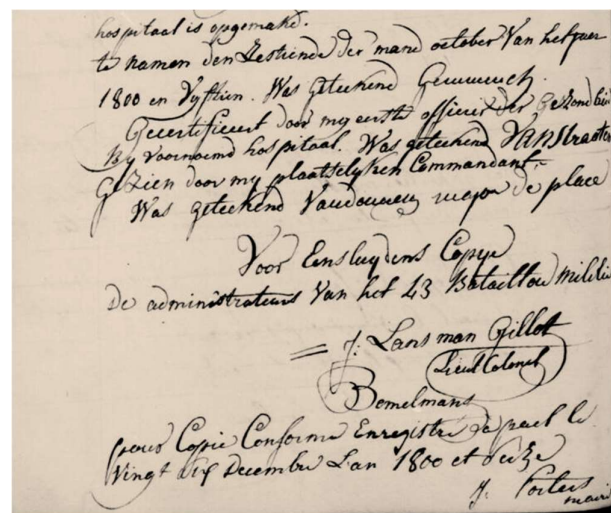 hospitaal is opgemakt.
te namen den Zestiende der maand october Van het jaer
1800 en Vyftien. Was geteekend
Gecertificeert door my eerste officier der Gezondhei
By voornoemd hospitaal. Was geteekend VanStraaten
Gezien door my plaatselyken Commandant
Was geteekend major de place
Voor Eensluydens Copye
De administrateurs Van het 43 Bataillon Militie
J. Lansman Gillot
Lieut Colonel
Bemelmans
pour Copie Conforme Enregistré le
Vingt Decembre L'an 1800 et Seize
J.
mair